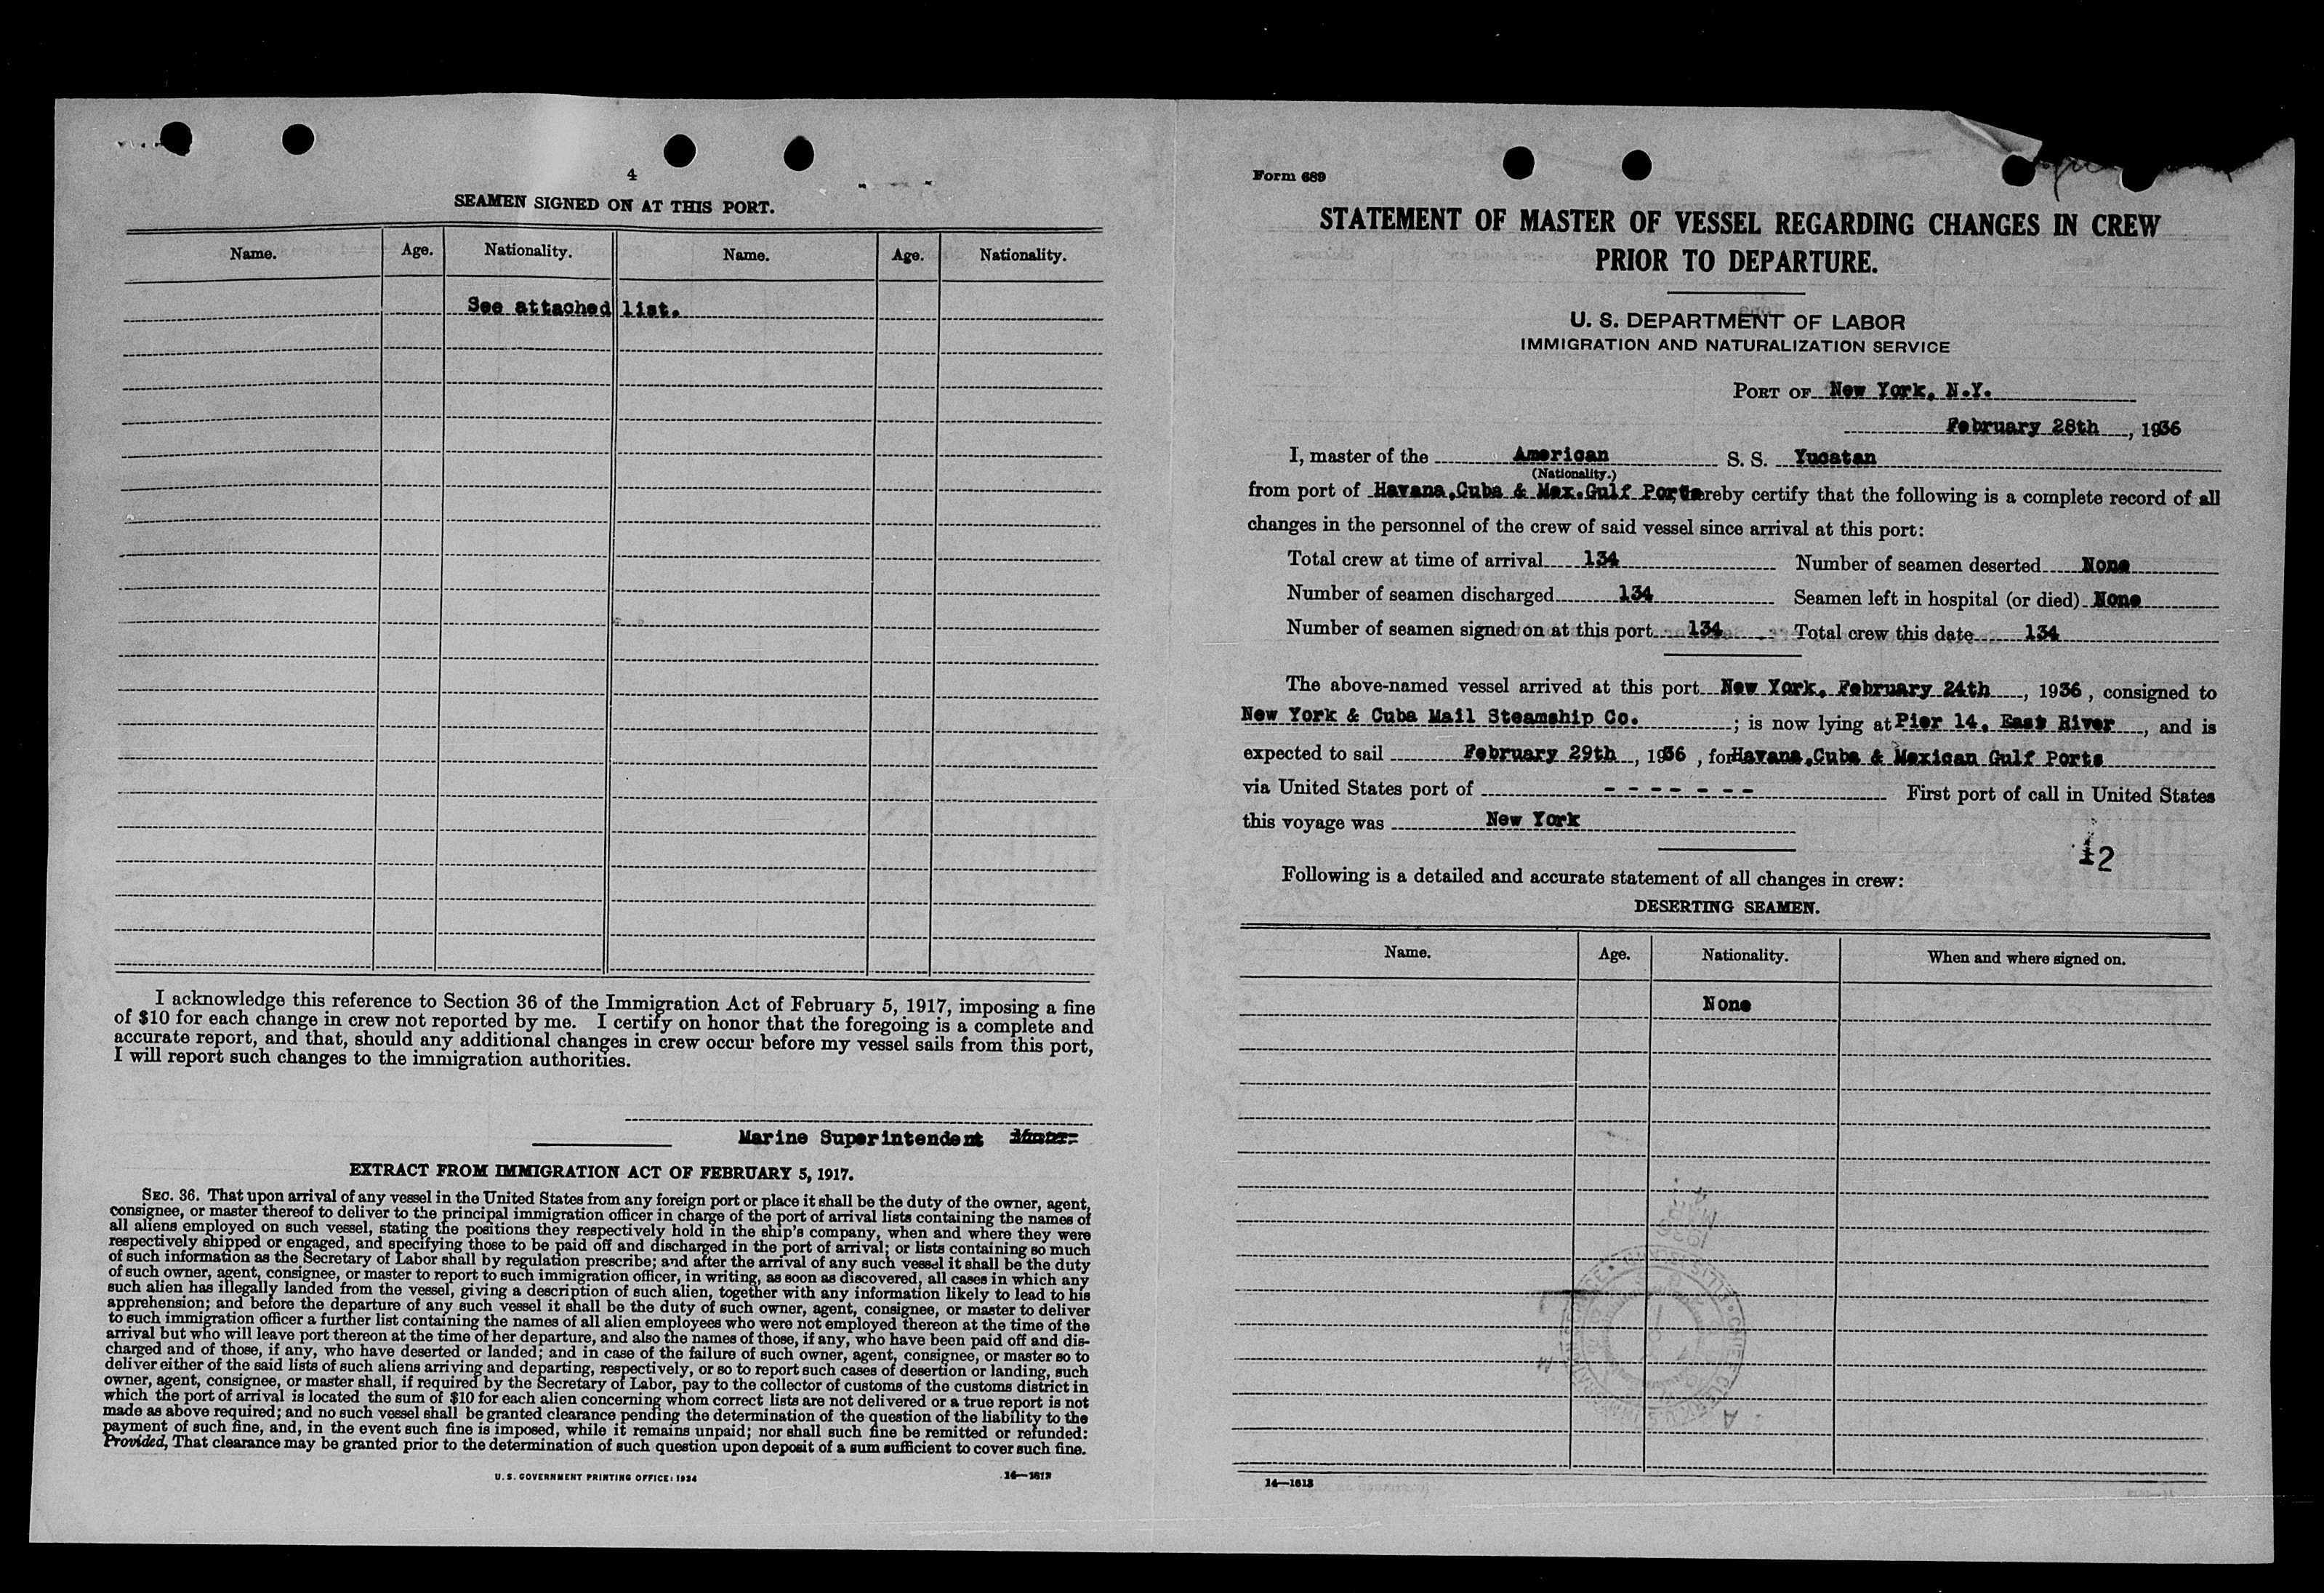 4
SEAMEN SIGNED ON AT THIS PORT.
Name. Age. Nationality. Name. Age. Nationality.
See attached list.
I acknowledge this reference to Section 36 of the Immigration Act of February 5, 1917, imposing a fine
of $10 for each change in crew not reported by me. I certify on honor that the foregoing is a complete and
accurate report, and that, should any additional changes in crew occur before my vessel sails from this port,
I will report such changes to the immigration authorities.
Marine Superintendent Master.
EXTRACT FROM IMMIGRATION ACT OF FEBRUARY 5, 1917.
SEC. 36. That upon arrival of any vessel in the United States from any foreign port or place it shall be the duty of the owner, agent,
consignee, or master thereof to deliver to the principal immigration officer in charge of the port of arrival lists containing the names of
all aliens employed on such vessel, stating the positions they respectively hold in the ship's company, when and where they were
respectively shipped or engaged, and specifying those to be paid off and discharged in the port of arrival; or lists containing so much
of such information as the Secretary of Labor shall by regulation prescribe; and after the arrival of any such vessel it shall be the duty
of such owner, agent, consignee, or master to report to such immigration officer, in writing, as soon as discovered, all cases in which any
such alien has illegally landed from the vessel, giving a description of such alien, together with any information likely to lead to his
apprehension; and before the departure of any such vessel it shall be the duty of such owner, agent, consignee, or master to deliver
to such immigration officer a further list containing the names of all alien employees who were not employed thereon at the time of the
arrival but who will leave port thereon at the time of her departure, and also the names of those, if any, who have been paid off and dis-
charged and of those, if any, who have deserted or landed; and in case of the failure of such owner, agent, consignee, or master so to
deliver either of the said lists of such aliens arriving and departing, respectively, or so to report such cases of desertion or landing, such
owner, agent, consignee, or master shall, if required by the Secretary of Labor, pay to the collector of customs of the customs district in
which the port of arrival is located the sum of $10 for each alien concerning whom correct lists are not delivered or a true report is not
made as above required; and no such vessel shall be granted clearance pending the determination of the question of the liability to the
payment of such fine, and, in the event such fine is imposed, while it remains unpaid; nor shall such fine be remitted or refunded:
Provided, That clearance may be granted prior to the determination of such question upon deposit of a sum sufficient to cover such fine.
U. S. GOVERNMENT PRINTING OFFICE: 1934 14—1613
Form 689
STATEMENT OF MASTER OF VESSEL REGARDING CHANGES IN CREW
PRIOR TO DEPARTURE.
U. S. DEPARTMENT OF LABOR
IMMIGRATION AND NATURALIZATION SERVICE
PORT OF New York, N.Y.
February 28th, 1936
I, master of the American S. S. Yucatan
(Nationality.)
from port of Havana, Cuba & Mex. Gulf Ports, hereby certify that the following is a complete record of all
changes in the personnel of the crew of said vessel since arrival at this port:
Total crew at time of arrival 134 Number of seamen deserted None
Number of seamen discharged 134 Seamen left in hospital (or died) None
Number of seamen signed on at this port 134 Total crew this date 134
The above-named vessel arrived at this port New York, February 24th, 1936, consigned to
New York & Cuba Mail Steamship Co. ; is now lying at Pier 14, East River, and is
expected to sail February 29th, 1936, for Havana, Cuba & Mexican Gulf Ports
via United States port of - - - - - - - First port of call in United States
this voyage was New York
12
Following is a detailed and accurate statement of all changes in crew:
DESERTING SEAMEN.
Name. Age. Nationality. When and where signed on.
None
14—1613